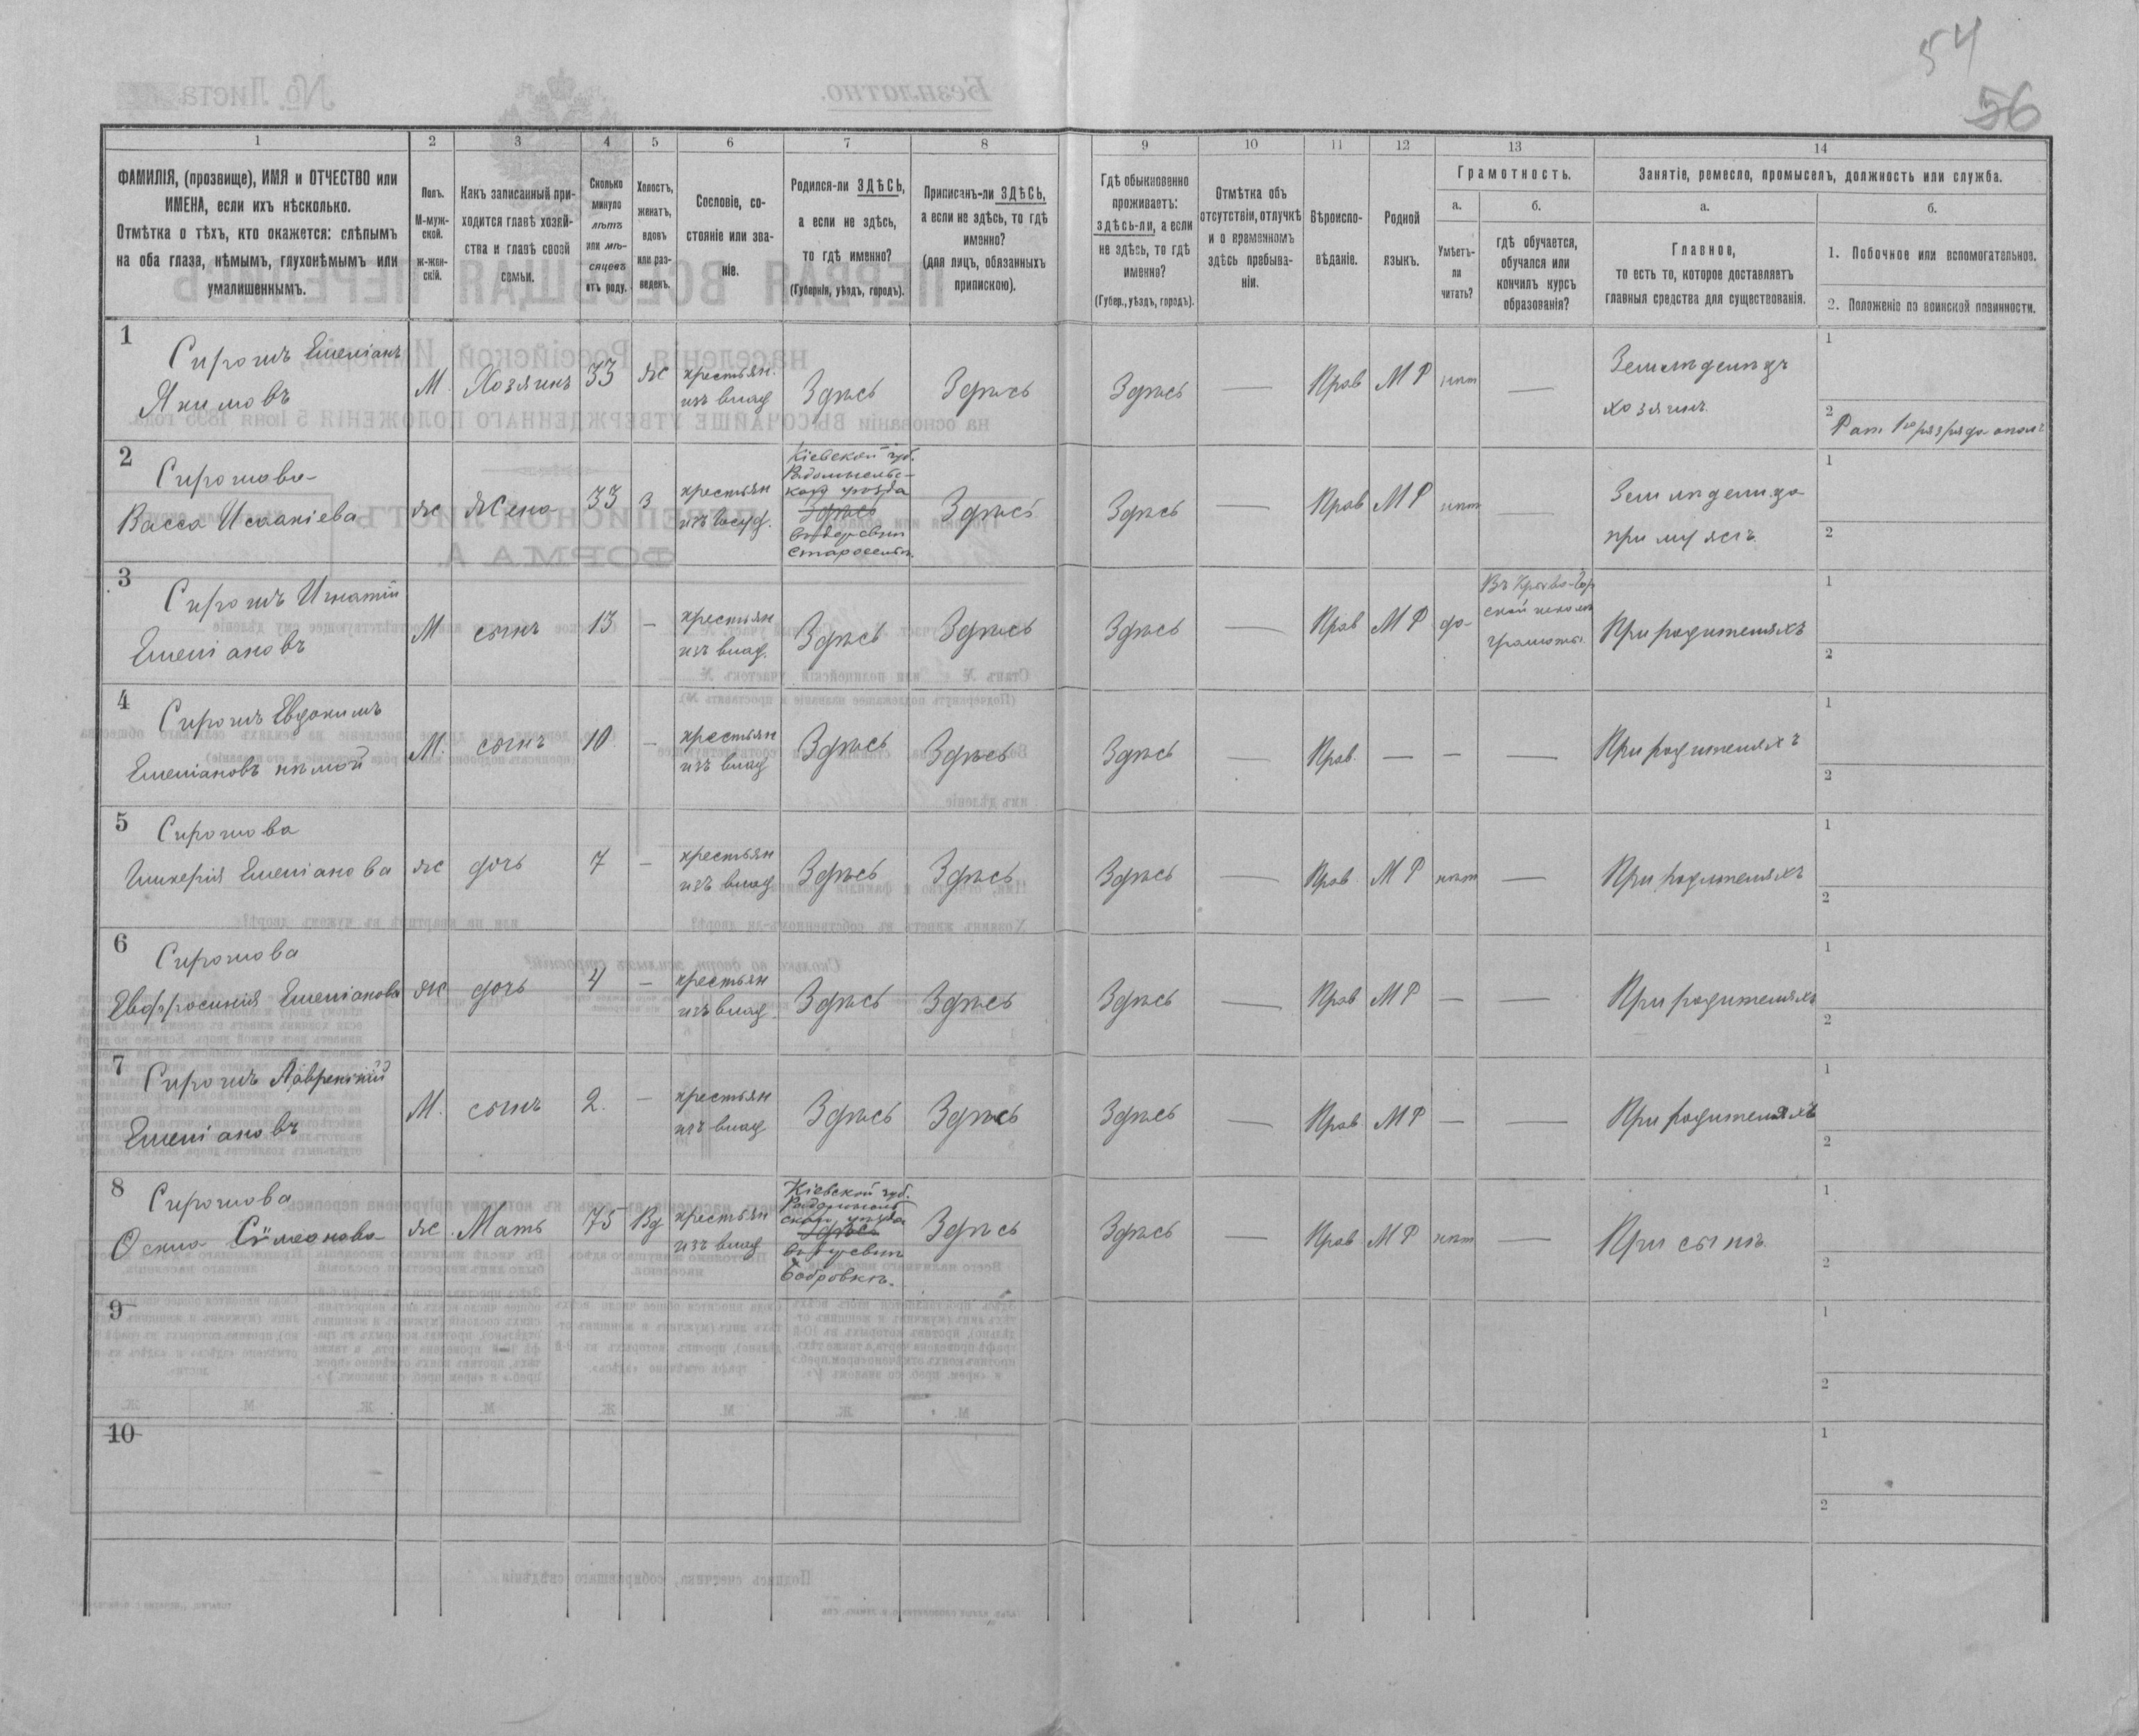 54
56
1 2 3 4 5 6 7 8 9 10 11 12 13 14
ФАМИЛІЯ, (прозвище), ИМЯ и ОТЧЕСТВО или
ИМЕНА, если ихъ нѣсколько.
Отмѣтка о тѣхъ, кто окажется: слѣпымъ
на оба глаза, нѣмымъ, глухонѣмымъ или
умалишеннымъ.
Полъ.
М-муж-
ской.
Ж-жен-
скій.
Какъ записанный при-
ходится главѣ хозяй-
ства и главѣ своей
семьи.
Сколько
минуло
лѣтъ
или мѣ-
сяцевъ
отъ роду.
Холостъ,
женатъ,
вдовъ
или раз-
веденъ.
Сословіе, со-
стояніе или зва-
ніе.
Родился-ли ЗДѢСЬ,
а если не здѣсь,
то гдѣ именно?
(Губернія, уѣздъ, городъ).
Приписанъ-ли ЗДѢСЬ,
а если не здѣсь, то гдѣ
именно?
(для лицъ, обязанныхъ
припискою).
Гдѣ обыкновенно
проживаетъ:
здѣсь-ли, а если
не здѣсь, то гдѣ
именно?
(Губер., уѣздъ, городъ).
Отмѣтка объ
отсутствіи, отлучкѣ
и о временномъ
здѣсь пребыва-
ніи.
Вѣроиспо-
вѣданіе.
Родной
языкъ.
Грамотность.
а.
Умѣетъ-
ли
читать?
б.
гдѣ обучается,
обучался или
кончилъ курсъ
образованія?
Занятіе, ремесло, промыселъ, должность или служба.
а.
Главное,
то есть то, которое доставляетъ
главныя средства для существованія.
б.
1. Побочное или вспомогательное.
2. Положеніе по воинской повинности.
1
Сиротъ Емеліанъ
Якимовъ
М. Хозяинъ 33 ж
крестьян.
изъ влад
Здѣсь Здѣсь Здѣсь — Прав М Р нѣт —
Земледѣлецъ
хозяинъ
1
2
Рат 1го разряда опол.
2
Сиротова
Васса Исаакіева
ж Жена 33 З
крестьян
изъ госуд.
Кіевской губ.
Радомысльс-
кого уѣзда
Здѣсь
въ деревни
Старосельи.
Здѣсь Здѣсь — Прав М Р нѣт —
Земледѣлица
при мужѣ
1
2
3
Сиротъ Игнатій
Емеліановъ
М сынъ 13 —
крестьян
изъ влад.
Здѣсь Здѣсь Здѣсь — Прав М Р да
ской школѣ
грамоты.
При родителяхъ
1
2
4
Сиротъ Евдокимъ
Емеліановъ нѣмой
М. сынъ 10 —
крестьян
изъ влад
Здѣсь Здѣсь Здѣсь — Прав. — — —
При родителяхъ
1
2
5
Сиротова
Гликерія Емеліанова
ж дочь 7 —
крестьян
изъ влад
Здѣсь Здѣсь Здѣсь — Прав. М Р нѣт —
При родителяхъ
1
2
6
Сиротова
Евфросинія Емеліанова
ж дочь 4 —
крестьян
изъ влад.
Здѣсь Здѣсь Здѣсь — Прав М Р — —
При родителяхъ
1
2
7
Сиротъ Лаврентій
Емеліановъ
М. сынъ 2. —
крестьян
изъ влад
Здѣсь Здѣсь Здѣсь — Прав. М Р — —
При родителяхъ
1
2
8
Сиротова
Симеонова
ж. Мать 75 Вд
крестьян
изъ влад
Кіевской губ.
Радомысль
ского уѣзда
Здѣсь
въ деревни
Бобровкѣ.
Здѣсь Здѣсь — Прав. М Р нѣт —
При сынѣ.
1
2
9
1
2
10
1
2